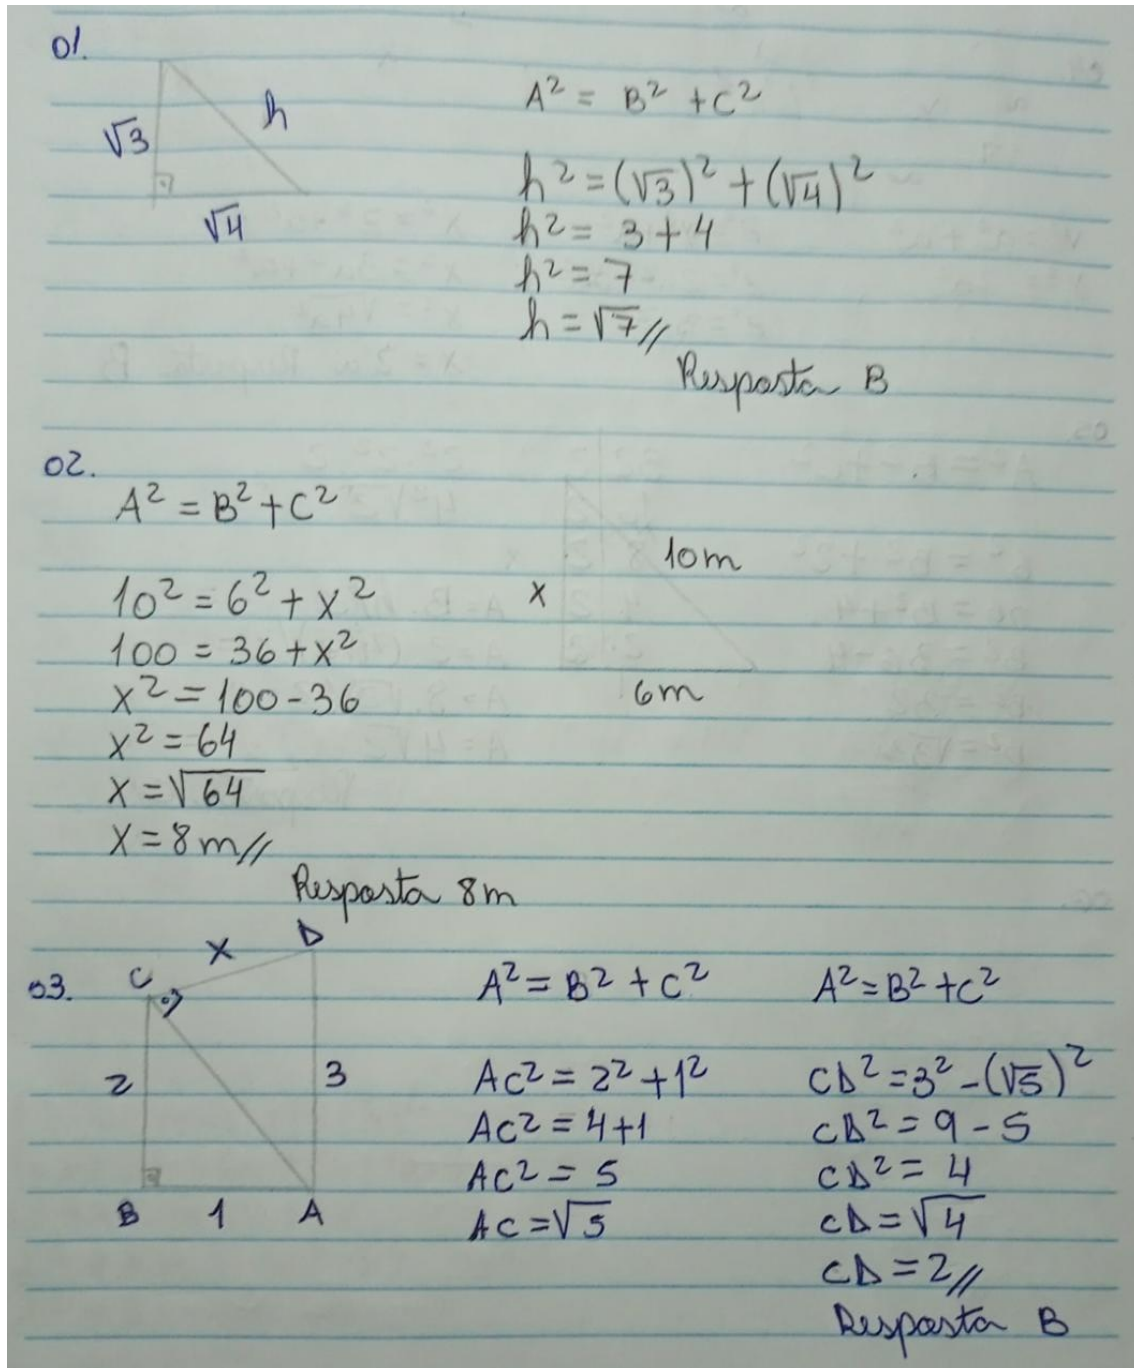 01.
√3
h
√4
A² = B² + C²
h² = (√3)² + (√4)²
h² = 3 + 4
h² = 7
h = √7//
Resposta B
02.
A² = B² + C²
10² = 6² + x²
100 = 36 + x²
x² = 100 - 36
x² = 64
x = √64
x = 8m//
Resposta 8m
10m
x
6m
03.
x
D
C
2
3
B
1
A
A² = B² + C²
AC² = 2² + 1²
AC² = 4 + 1
AC² = 5
AC = √5
A² = B² + C²
CD² = 3² - (√5)²
CD² = 9 - 5
CD² = 4
CD = √4
CD = 2//
Resposta B